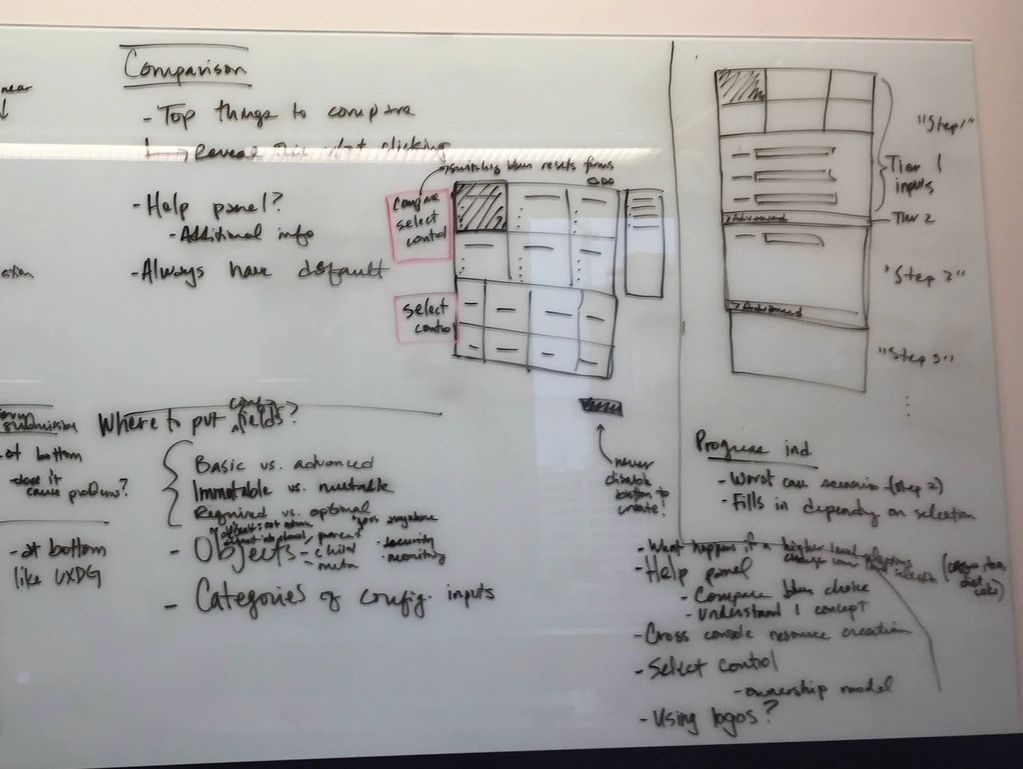 near
Comparison
- Top things to compare
Reveal this w/o clicking
- Help panel?
- Additional info
- Always have default
switching btwn resets forms
compare
select
control
select
control
never
disable
button to
create!
"Step 1"
Tier 1
inputs
> Advanced
Tier 2
"Step 2"
> Advanced
"Step 3"
submission
at bottom
- does it
cause problems?
- at bottom
like UXDG
Where to put config fields?
Basic vs. advanced
Immutable vs. mutable
Required vs. optional
- Objects - child
- meta
parent
- security
- monitoring
- Categories of config. inputs
Progress ind.
- Worst case scenario (step 2)
- Fills in depending on selection
- What happens if a higher level
- Help panel
- Compare btwn choice
- Understand 1 concept
- Cross console resource creation
- Select control
- ownership model
- Using logos?